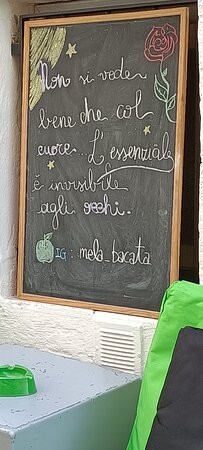 Non si vede
bene che col
cuore... L'essenziale
è invisibile
agli occhi.
IG : mela_bacata